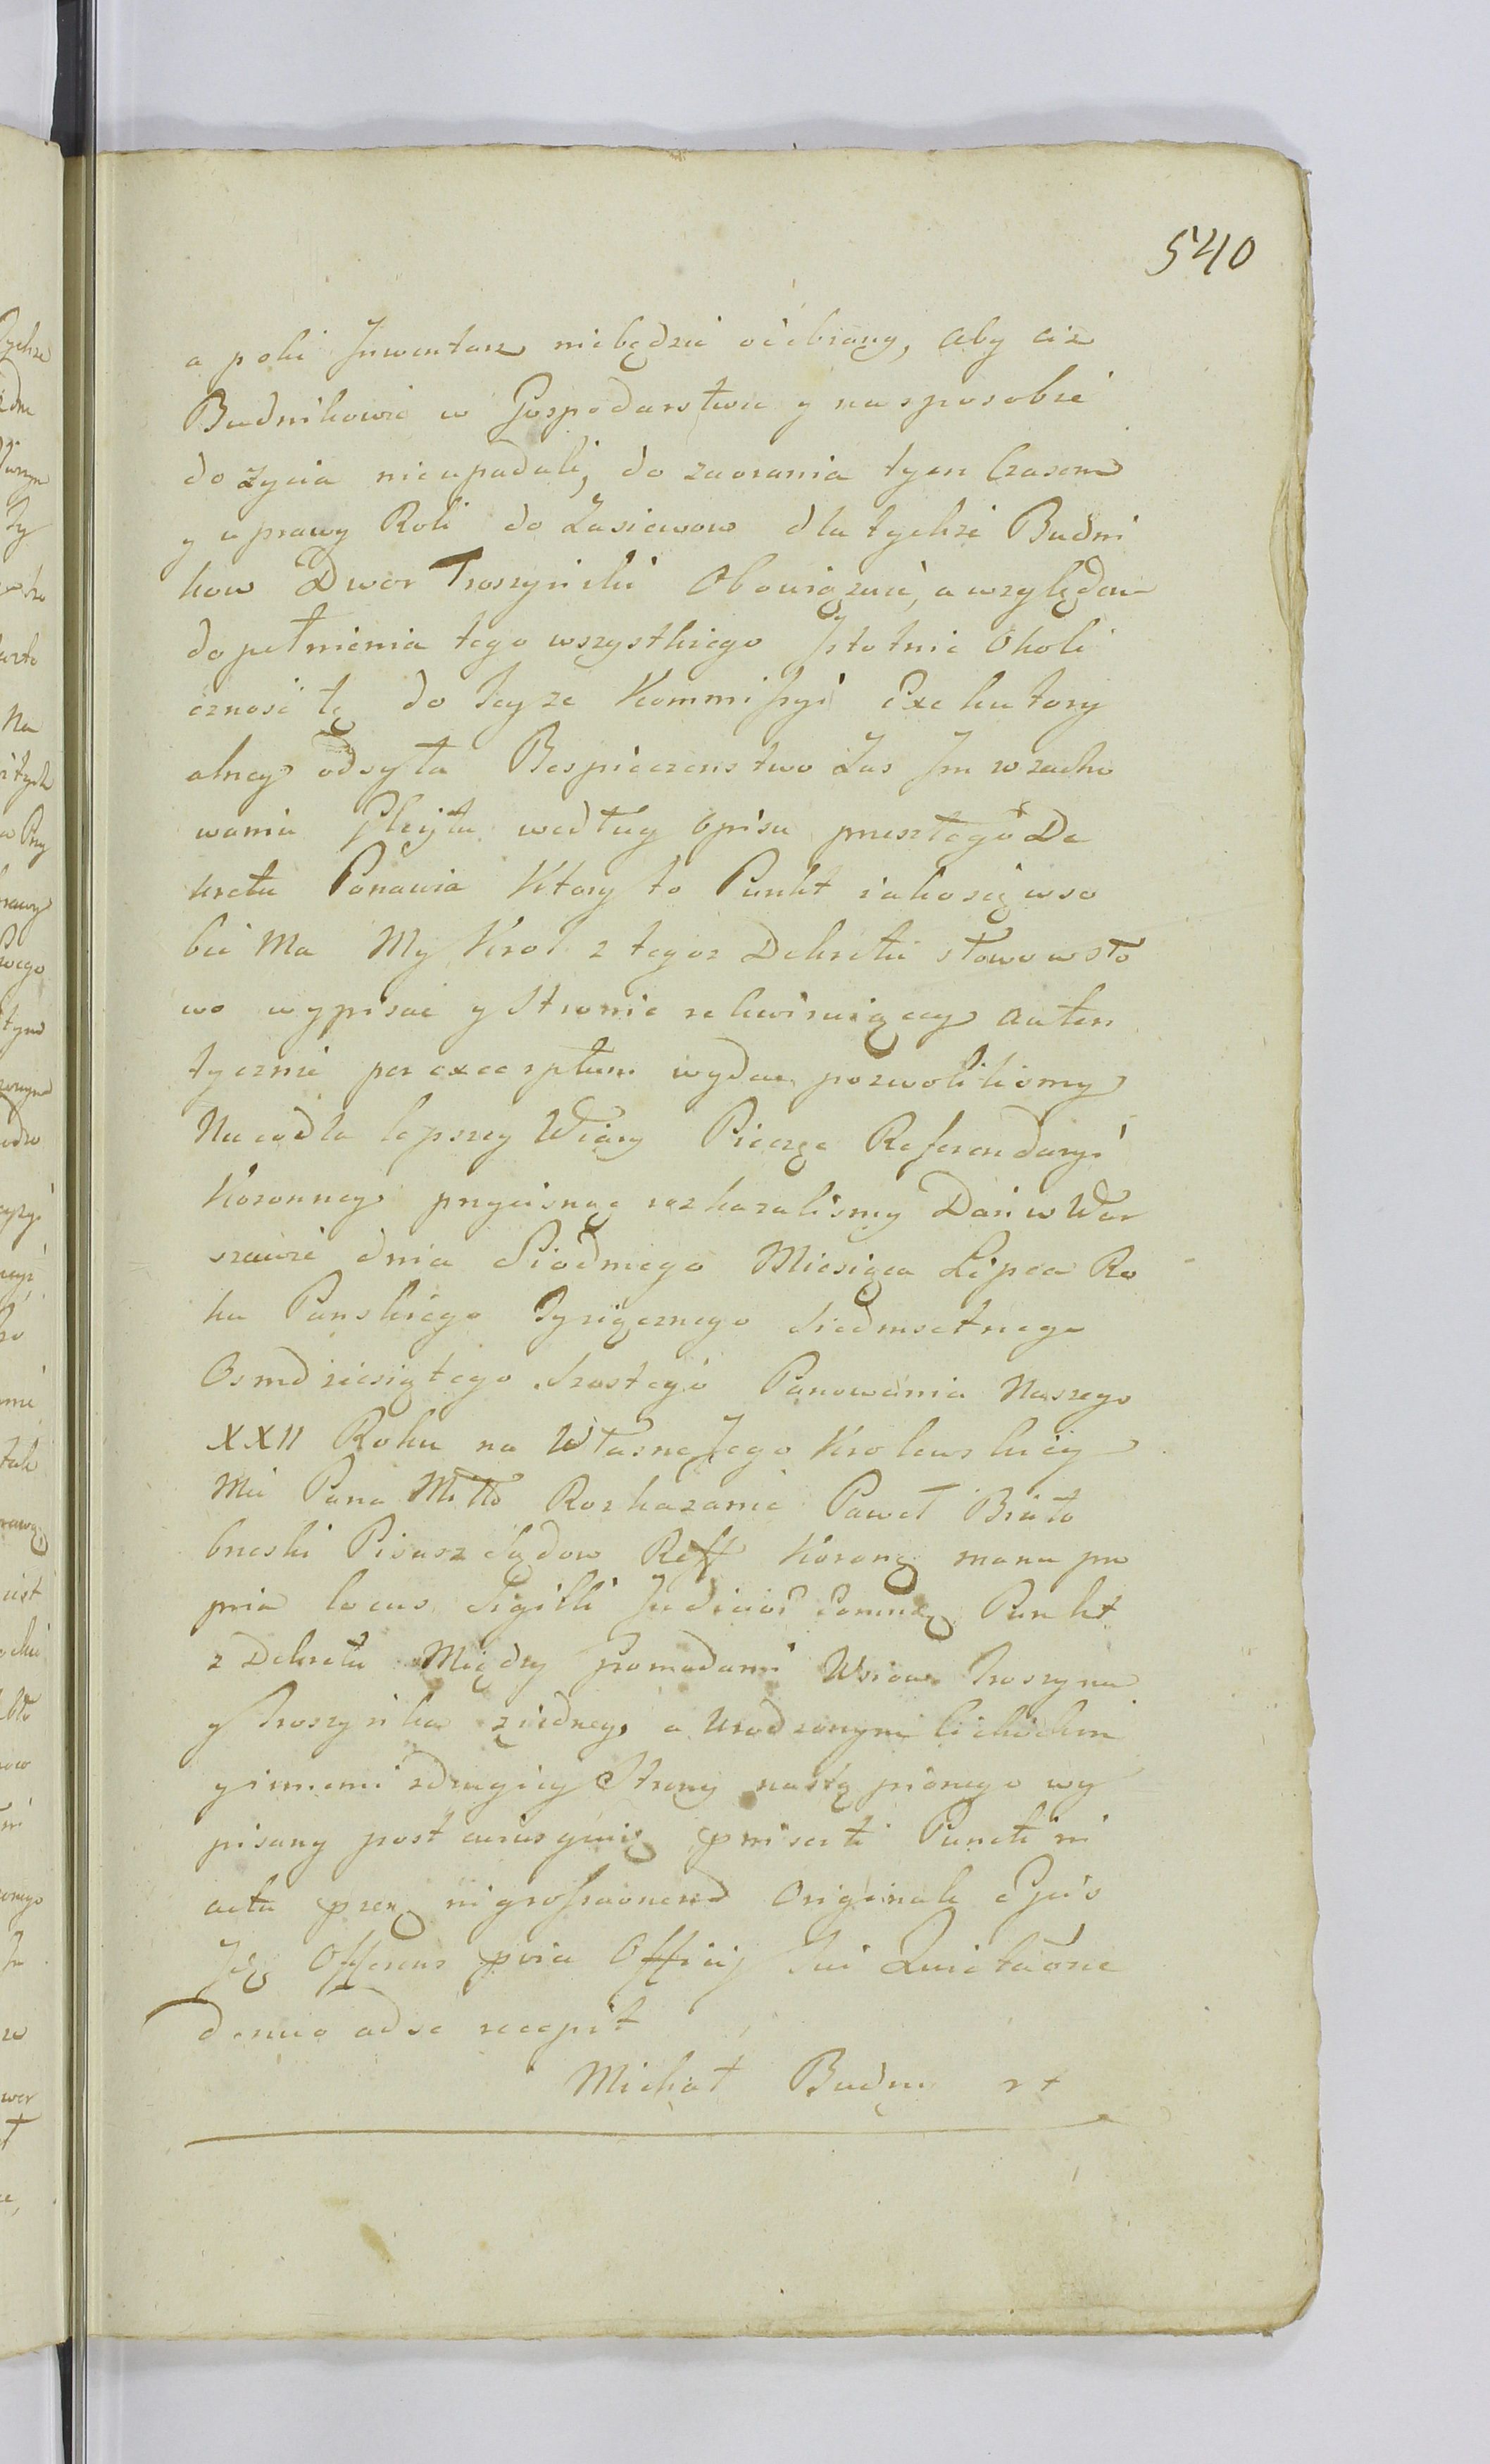 540
a poki Inwentarz niebędzie odebrany, aby ciż
Budnikowie w Gospodarstwie y na sposobie
do życia nieupadali, do zaorania tym Czasem
y uprawy Roli do Zasiewow dla tychże Budni
kow Dwor Troszyński Obowiązuie, a względem
dopełnienia tego wszystkiego Istotnie Okoli
czność tę do teyże Kommissyi Exekutory
alney odsyła Bespieczenstwo Zas Im w zacho
waniu Gleytu według opisu przeszłego De
kretu Ponawia Ktory to Punkt iako się w so
bie Ma My Krol z tegoz Dekretu słowo w sło
wo wypisać y Stronie rekwiruiącey auten
tycznie per excerptum wydać pozwoliliśmy
Na co dla lepszey Wiary Pieczęć Referendaryi
Koronney przycisnąć rozkazaliśmy Dan w War
szawie dnia Siodmego Miesiąca Lipca Ro
ku Panskiego Tysiącznego Siedmsetnego
Osmdziesiątego Szostego Panowania Naszego
XXII Roku na Własne Jego Krolewskiey
Mci Pana Mtto Rozkazanie Paweł Biało
brzeski Pisarz Sądow Reff Koronę manu pro
pria locus Sigilli Punkt
z Dekretu Między Gromadami Wsiow Troszyna
y Troszynka z iedney, a Urodzonymi Cichockim
y innemi z drugiey Strony nastąpionego wy
pisany post cuius Puncti in
acta Originale Ejus
Idę Offerens Officij Sui
denuo ad se recepit
Michał Budny